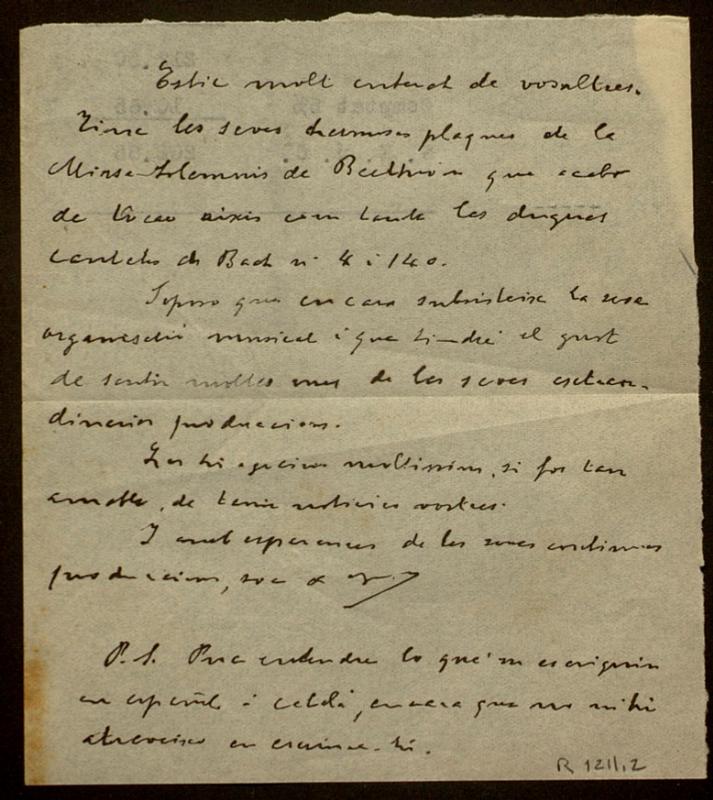 Estic molt enterat de vosaltres.
Tinc les seves hermoses plaques de la
Missa Solemnis de Beethoven que acabo
de tocar aixis com tambe les dugues
cantates de Bach nº 4 i 140.
Suposo que encara subsisteix la seva
organisació musical i que tindré el gust
de sentir moltes mes de les seves extraor-
dinaries produccions.
Les hi agrairia moltissim, si fos tan
amable, de tenir noticies vostres.
I amb esperances de les seves
produccions, soc
P.S. Puc entendre lo que'm escriguin
en español i català, encara que no m'hi
atreveixo en escriure-hi.
R 1211,2